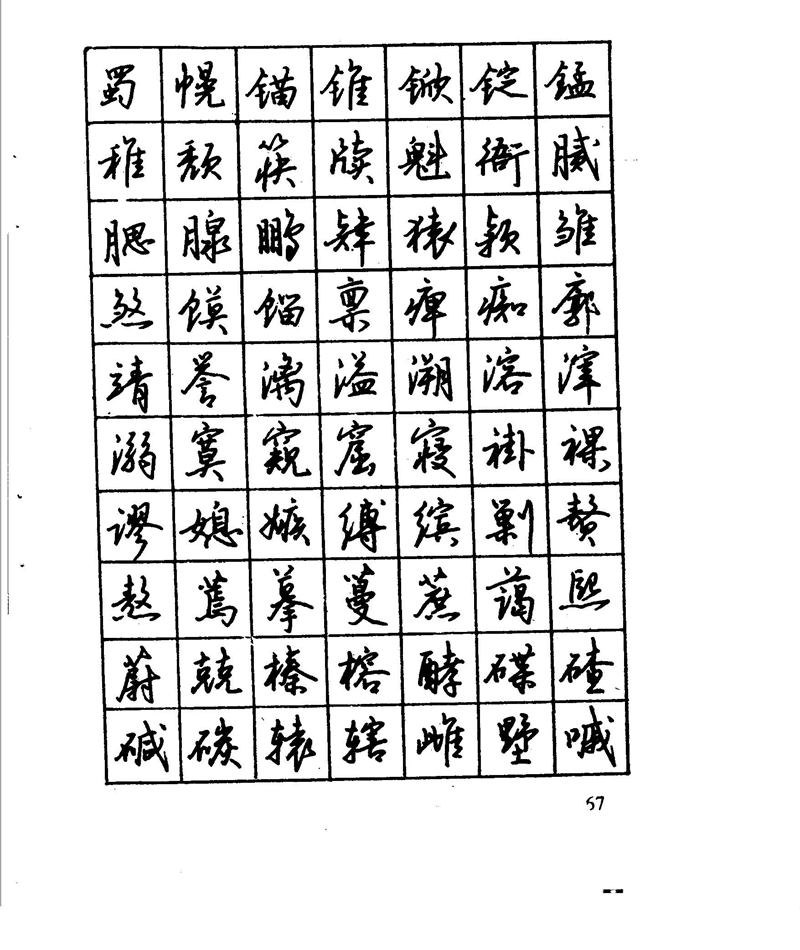 蜀幌锚锥锨锭锰
稚颓筷牍魁衙腻
腮腺鹏肄猿颖雏
煞馍馏禀痹痴廓
靖誉漓溢溯溶滓
溺寞窥窟寝褂裸
谬媳嫉缚缤剿赘
熬蔫摹蔓蔗蔼熙
蔚兢榛榕酵碟碴
碱碳辕辖雌墅嘁
57